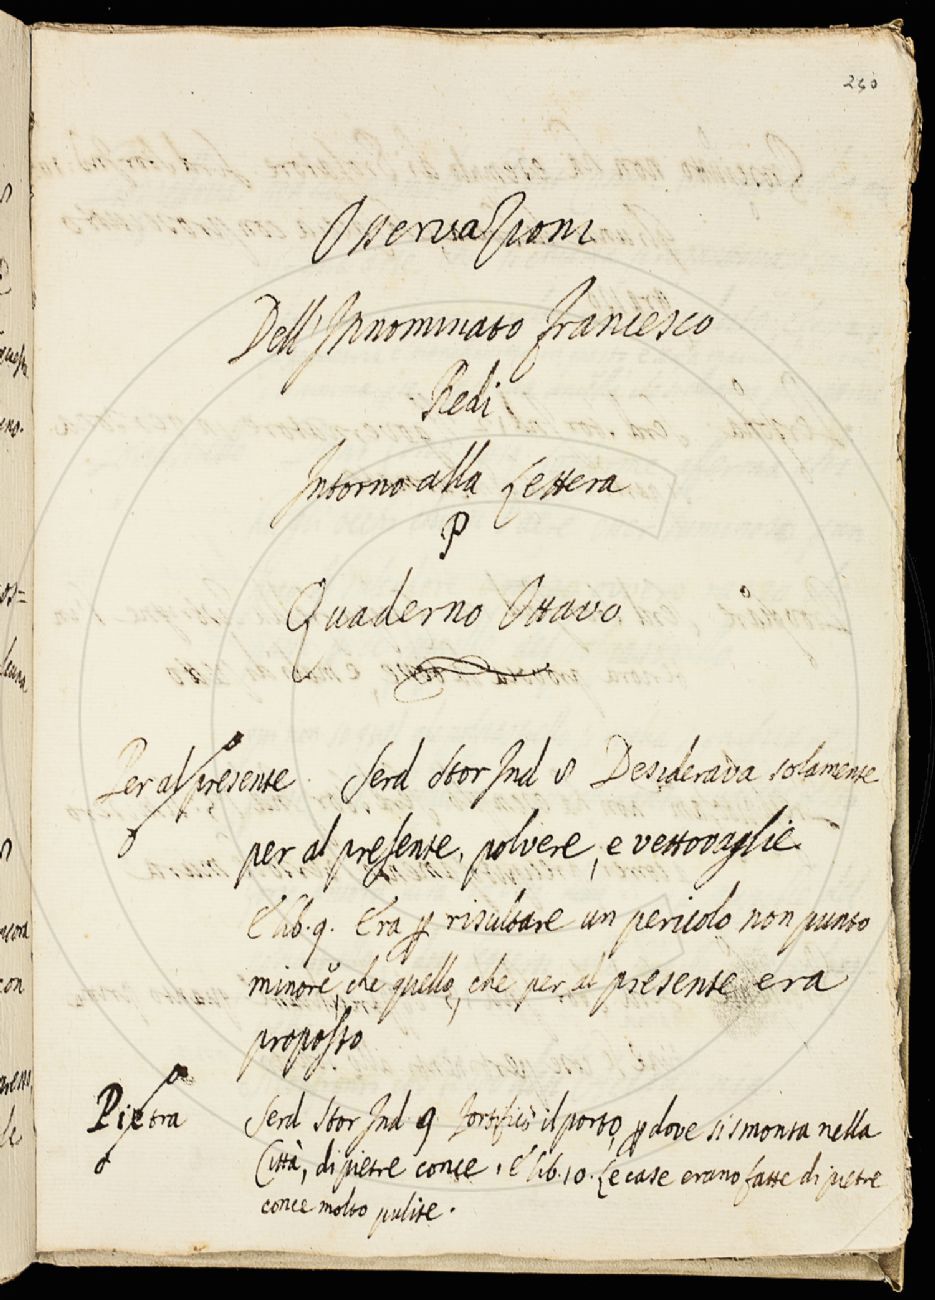 240
Osservazioni
Dell'Innominato Francesco
Redi
Intorno alla Lettera
P
Quaderno Ottavo
Per al presente. Serd Stor Ind 8 Desiderava solamente
per al presente, polvere, e vettovaglie.
E lib. 9. Era p risultare un pericolo non punto
minore, che quello, che per al presente era
proposto
Pietra Serd Stor Ind 9 Fortificò il porto, p dove si smonta nella
Città, di pietre conce, E lib. 10. Le case erano fatte di pietre
conce molto pulite.